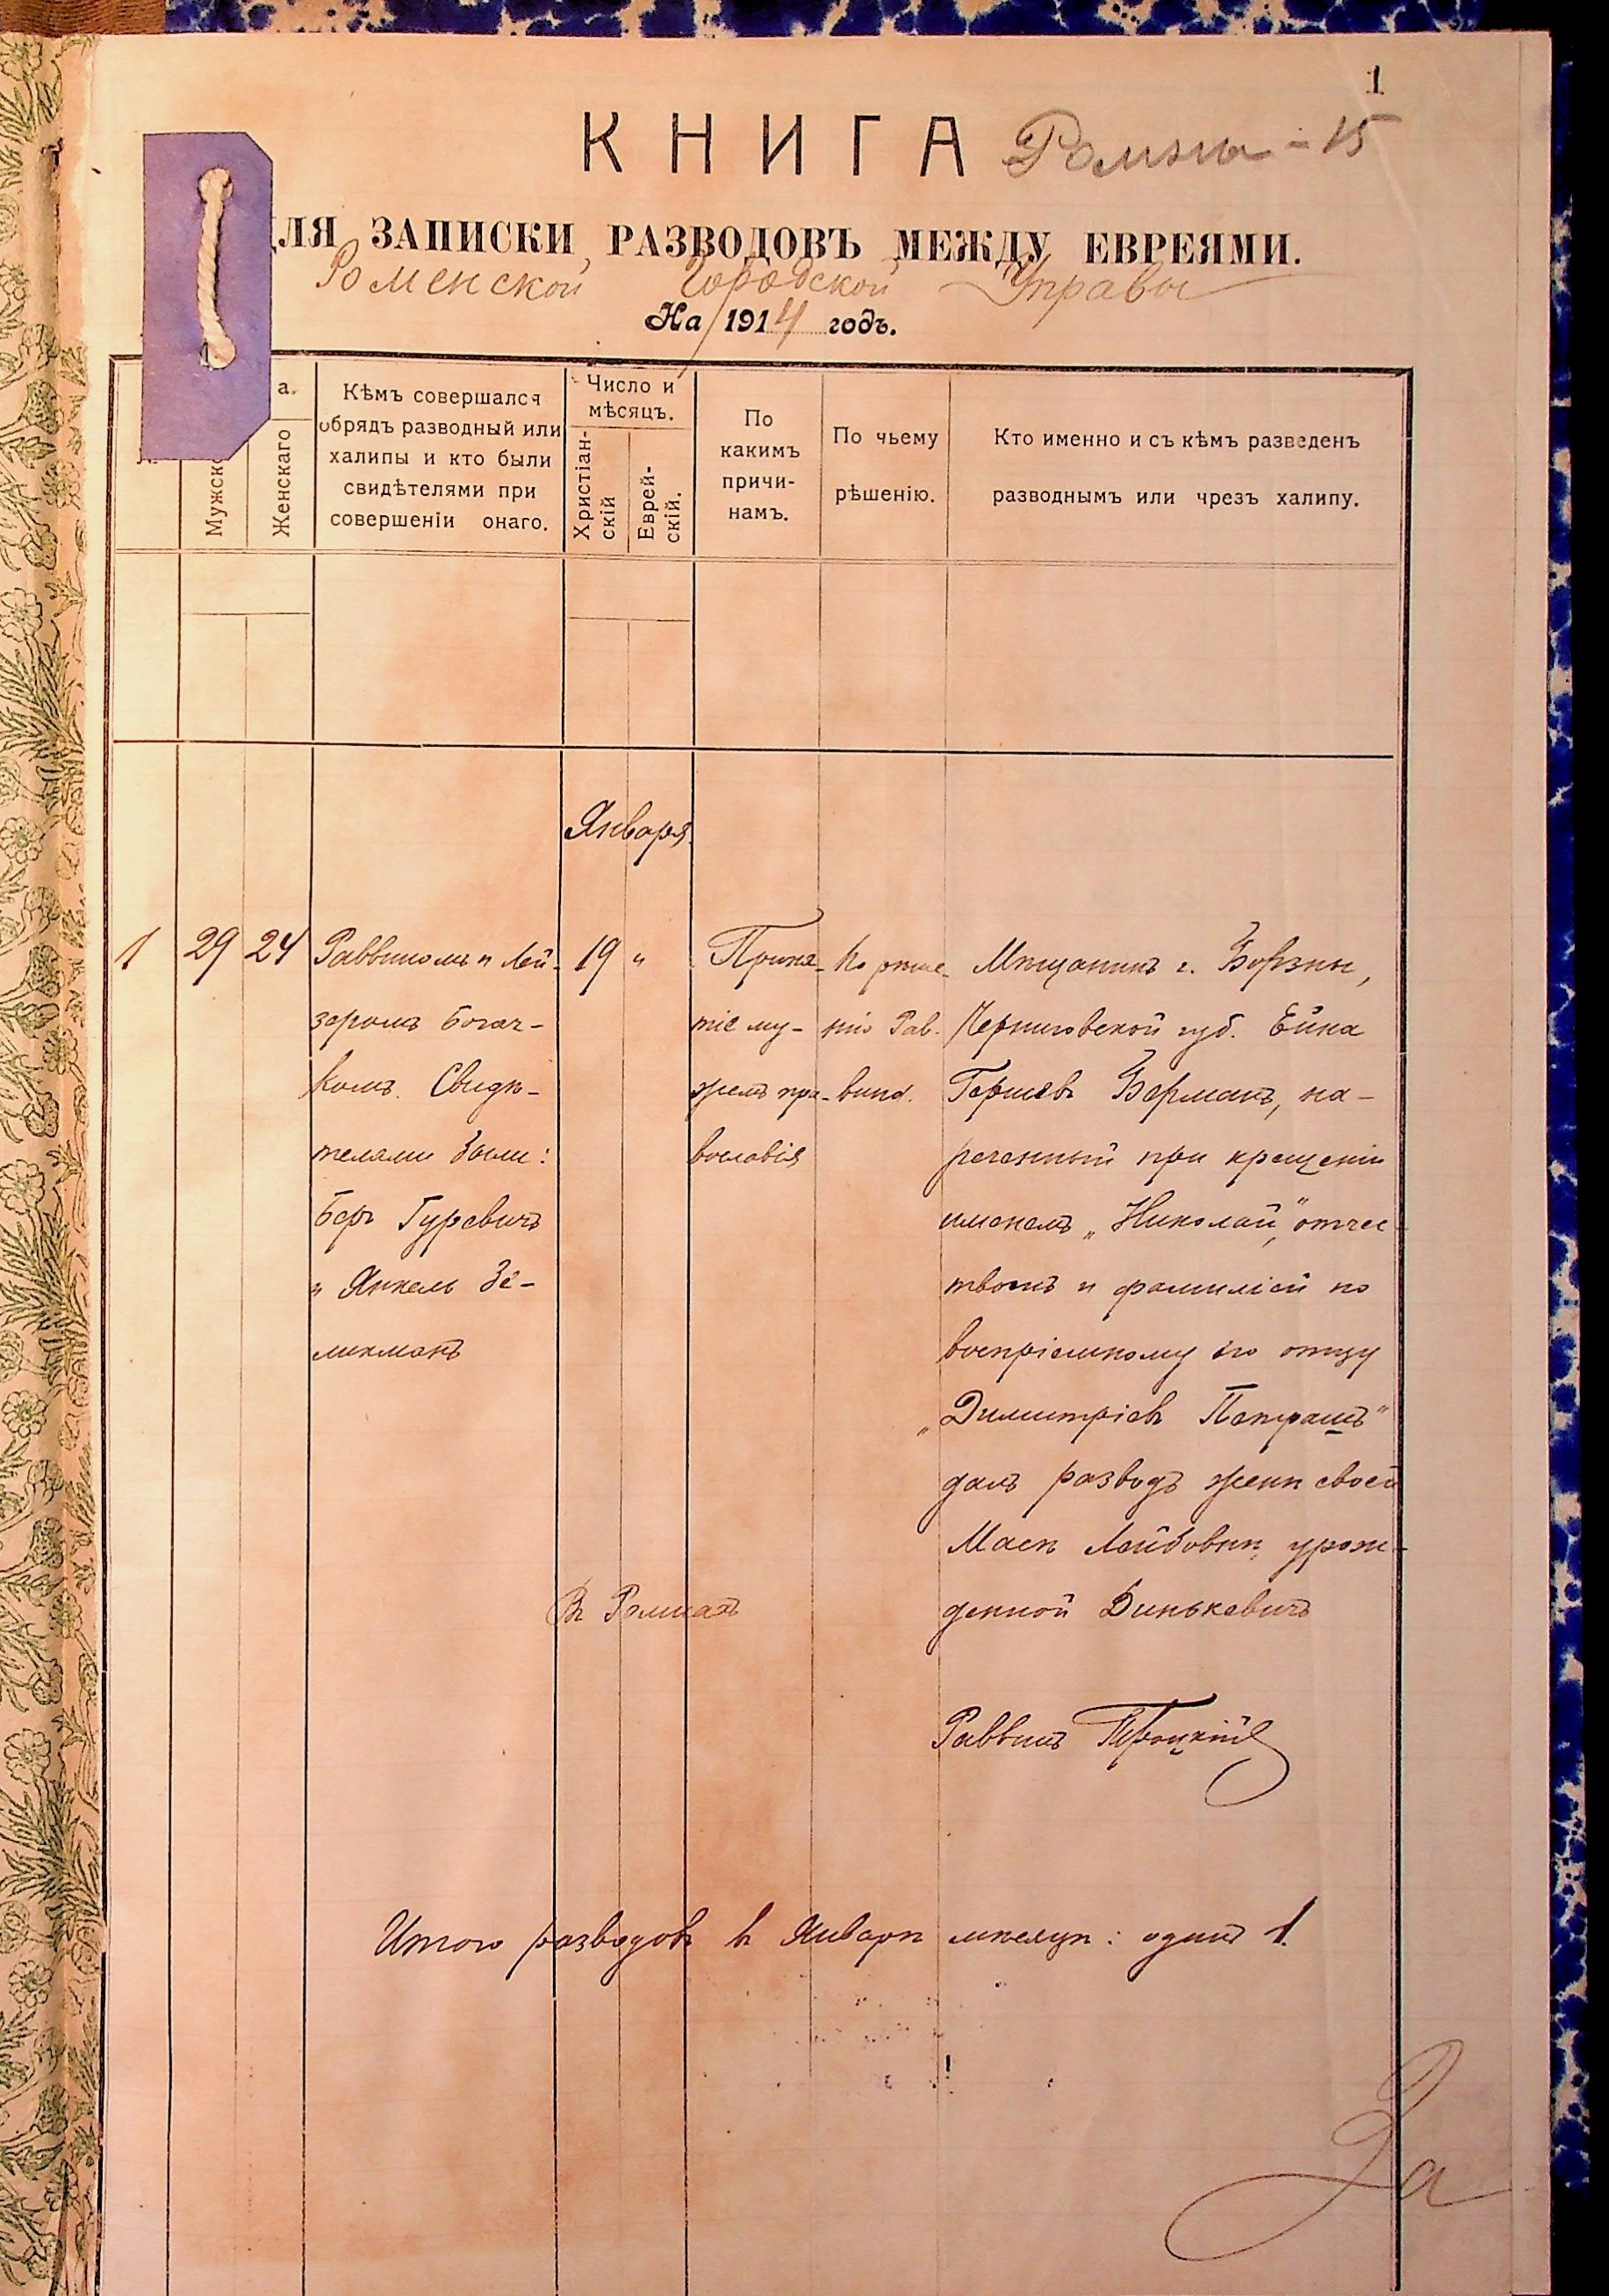 1
КНИГА Ромны - 15
ДЛЯ ЗАПИСКИ РАЗВОДОВЪ МЕЖДУ ЕВРЕЯМИ.
Роменской Городской Управы
На 1914 годъ.
а.
Мужско
Женскаго
Кѣмъ совершался
обрядъ разводный или
халипы и кто были
свидѣтелями при
совершеніи онаго.
Число и
мѣсяцъ.
Христіан-
скій
Еврей-
скій.
По
какимъ
причи-
намъ.
По чьему
рѣшенію.
Кто именно и съ кѣмъ разведенъ
разводнымъ или чрезъ халипу.
Января.
1
29
24
Раввиномъ Лей-
зеромъ Богач-
комъ. Свидѣ-
телями были:
Беръ Гуревичъ
и Янкель Зе-
ликманъ
19 "
Въ Ромнахъ
Приня-
тіе му-
жемъ пра-
вославія
По рѣше-
нію Рав-
вина.
Мѣщанинъ г. Борзны,
Черниговской губ. Ейна
Гершевъ Берманъ, на-
реченный при крещеніи
именемъ „Николай", отчес-
твомъ и фамиліей по
воспріемному его отцу
„Димитріевъ Петрашъ"
далъ разводъ женѣ своей
Масѣ Лейбовнѣ, урож-
денной Динькевичъ
Раввинъ Троцкій
Итого разводовъ въ Январѣ мѣсяцѣ: одинъ 1.
За